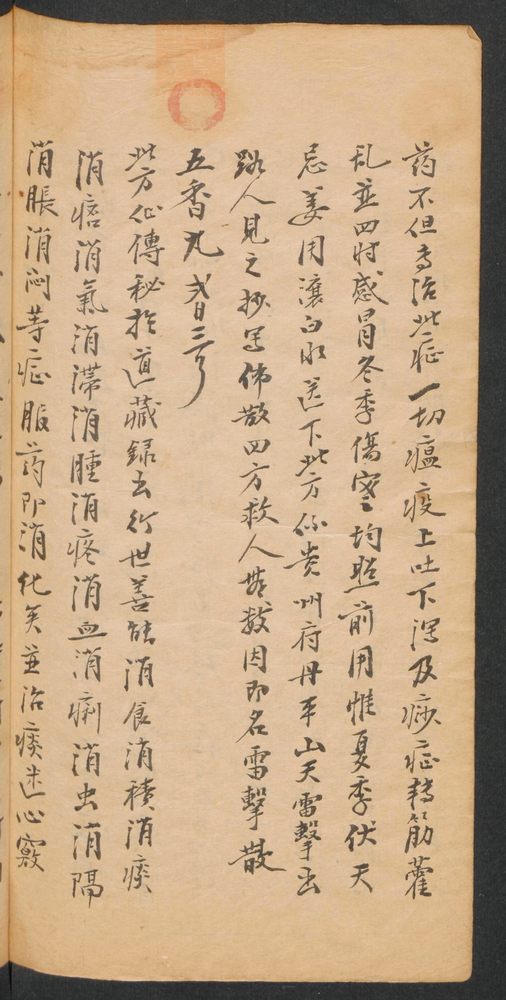 药不但专治此症一切瘟疫上吐下泻及痧症轉筋藿
乱並四时感冒冬季傷寒均照前用惟夏季伏天
忌姜用滚白水送下此方係贵州府丹平山天雷擊出
跳人見之抄写佈散四方救人無数因即名雷擊散
五香丸
此方仙傳秘於道藏録出行世善能消食消積消痰
消痞消氣消滞消腫消疼消血消痢消虫消隔
消脹消闷等症服药即消化矣並治痰迷心竅